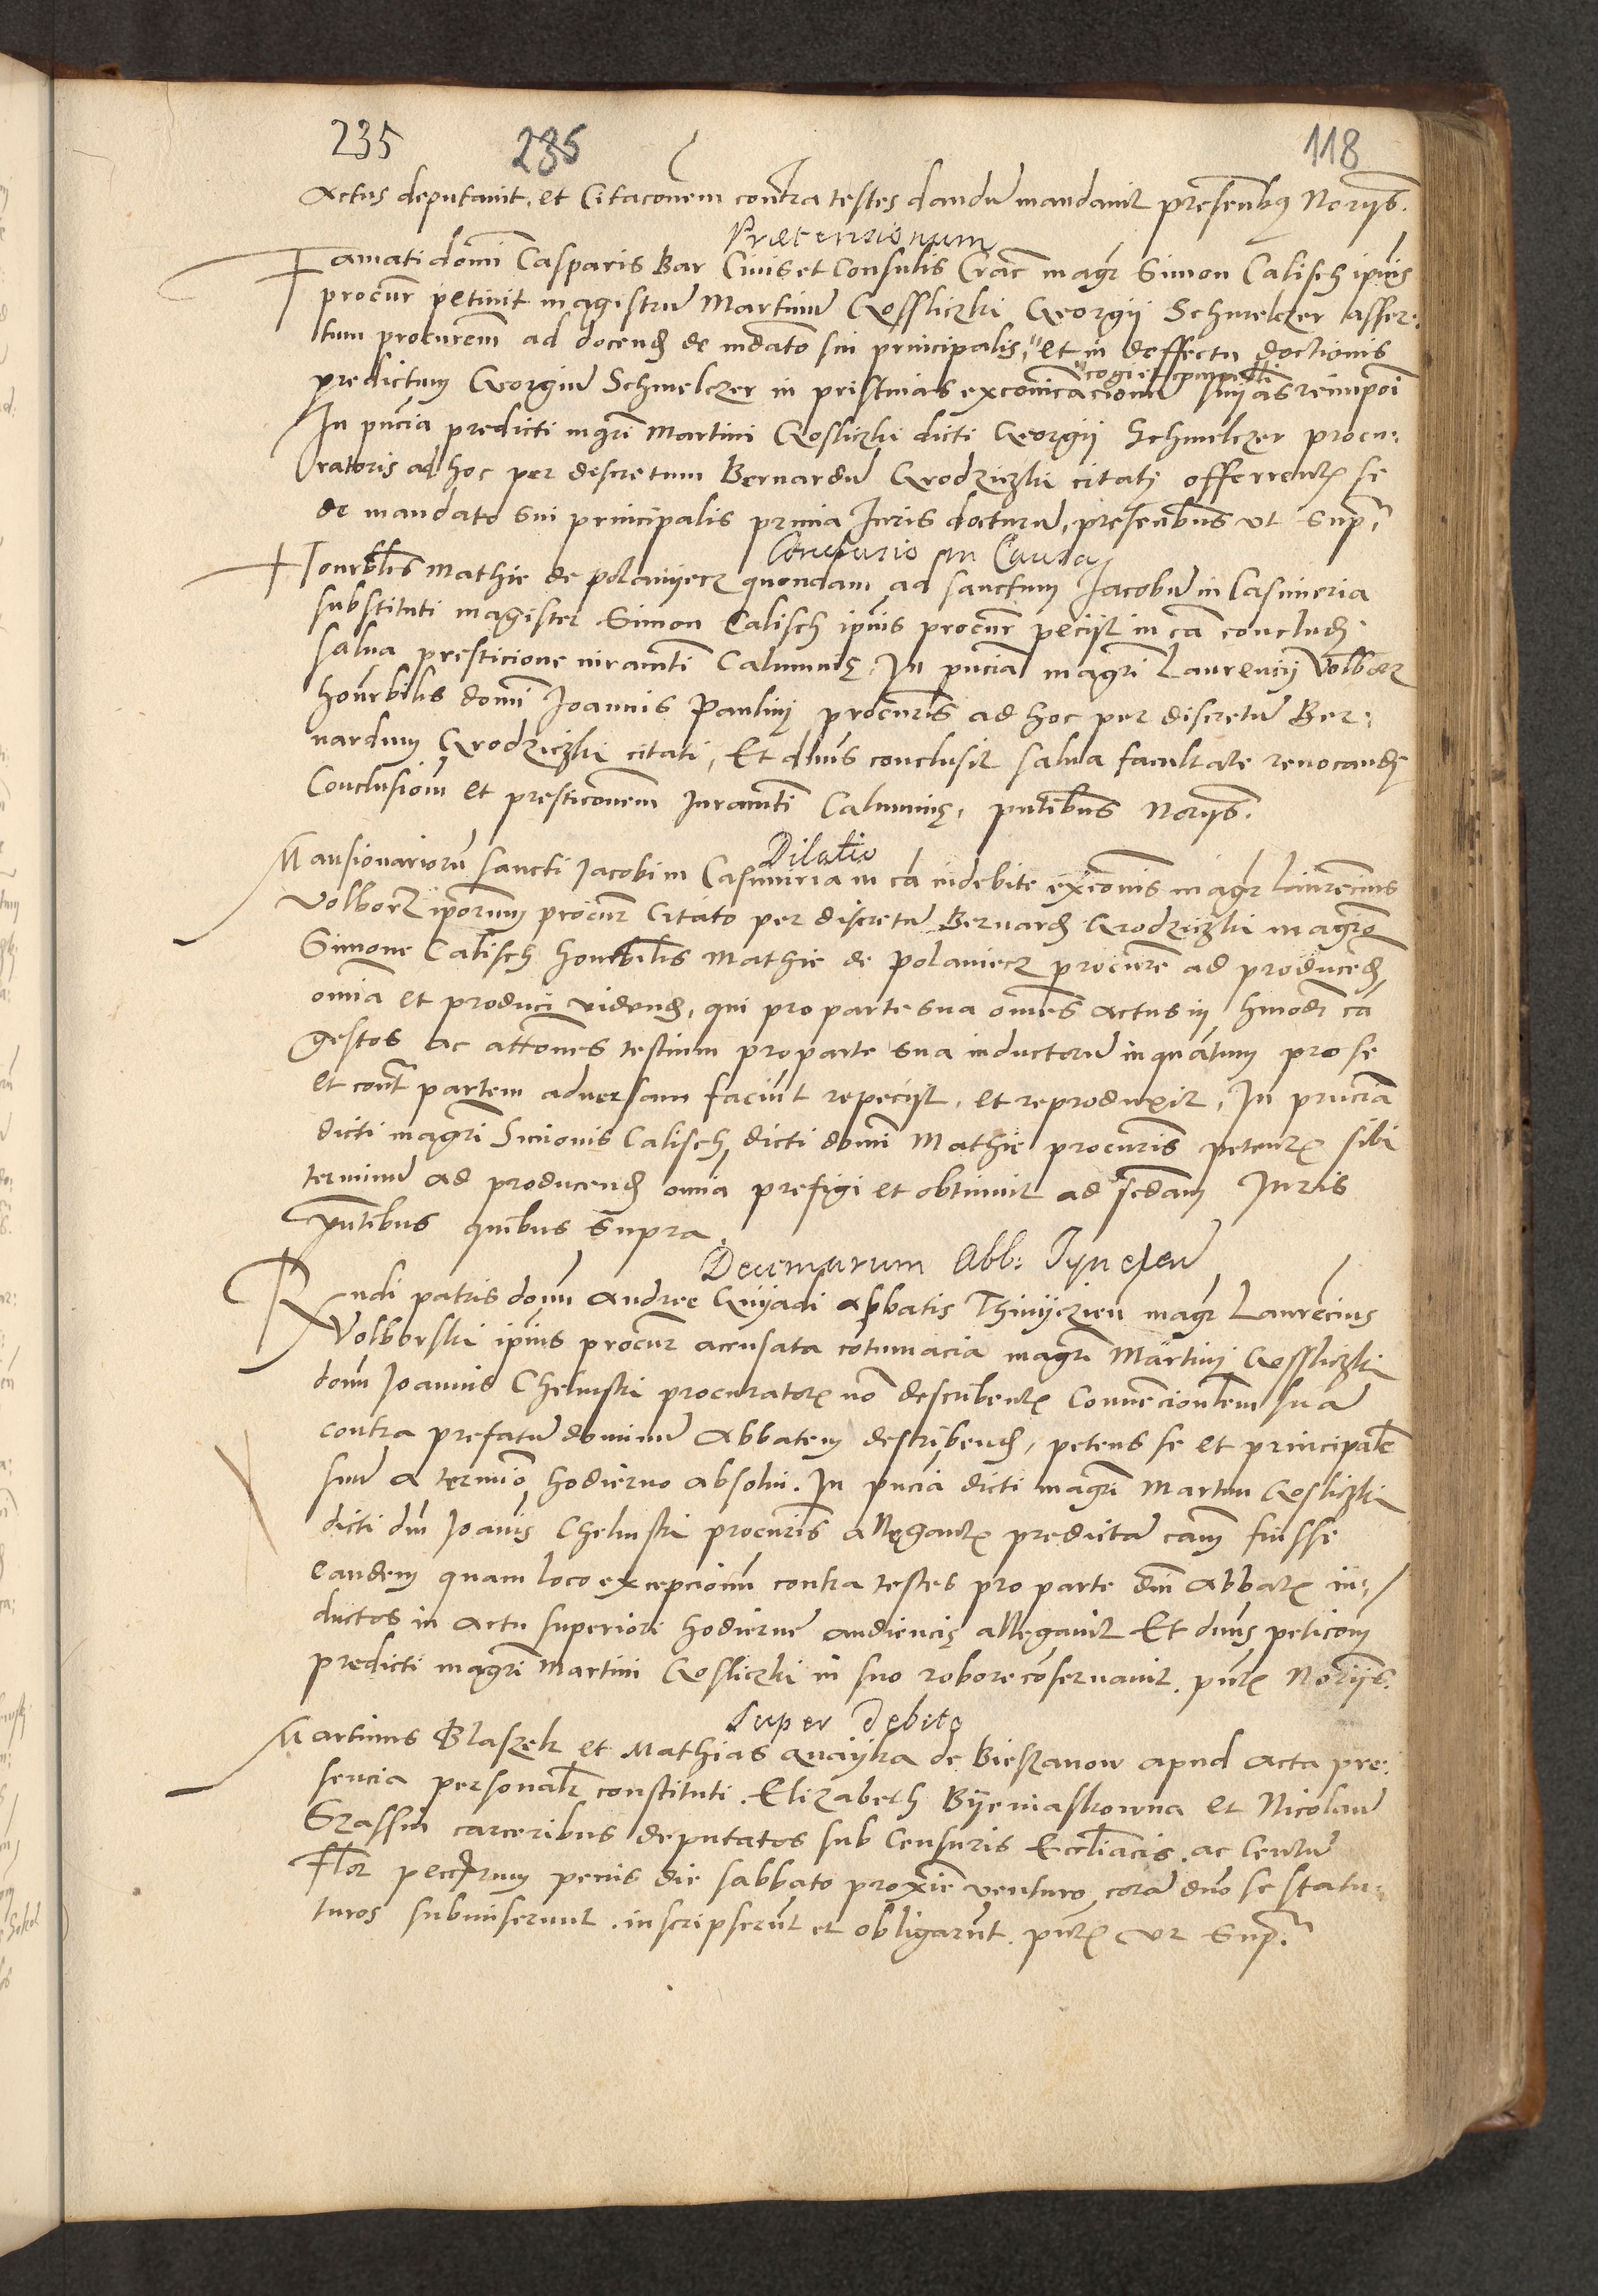 235 235 118
Actus deputavit, et Citaconem contra testes dandu mandavit presentibus Norijs.
Praetensionum
Famati domi Casparis Bar Civis et Consulis Crac magr Simon Calisch ipius
procur petivit magistru Martinu Gosslickzi Georgij Schmelczer asser-
tum procurem ad docend de mdato sui principalis, et in deffectu doctionis
cogi et compelli
predictum Georgiu Schmelczer in pristinas exconicacionu snias reimpoi
In pncia predicti mgri Martini Gosliczki dicti Georgij Schmelczer procu-
ratoris ad hoc per discretum Bernardu Grodziczki citati offerrentis se
de mandato sui principalis prima Iuris docturu, presentibus ut supra
Conclusio in Causa
Honrblis Mathie de Polanijecz quondam ad sanctum Jacobu in Casimeria
substituti magister Simon Calisch ipius procur pecijt in ca concludi
salva presticione iuramti Calumnie, In pncia magri Laurencij Volborz
honrbilis domi Joannis Paulini procuris ad hoc per discretu Ber-
nardum Grodziczki citati, Et dnus conclusit salva facultate revocandi
Conclusiom et presticonem Iuramti Calumnie, pntibus Norijs.
Dilatio
Mansionarioru sancti Jacobi in Casimiria in ca indebite exconis magr Laurencius
Volborz iporum procur Citato per discretu Bernard Grodziczki magro
Simone Calisch honrbilis Mathie de Polaniecz procure ad producend
omia et produci videnD, qui pro parte sua omes actus in hmodi ca
gestos ac attones testium pro parte sua inductoru inquatum pro se
et cont partem adversam faciut repecijt, et reproduxit, In pncia
dicti magri Simonis Calisch, dicti domi Mathie procuris petentis sibi
terminu ad producend omia prefigi et obtinuit ad scdam Iuris
pntibus quibus supra.
Decimarum Abb: Tynecen
Rndi patris domi Andree Gnijadi abbatis Thinijczien magr Laurecius
Volborski ipius procur accusata cotumacia magri Martini Gossliczki
domi Joannis Chelmski procuratoris no describentis Convencionlem sua
contra prefatu dominu Abbatem describend, petens se et principale
suu a termio hodierno absolui. In pncia dicti magri Martini Gosliczki
dicti dni Joanis Chelmski procuris allegantis predicta cam fuisse
eandem quam loco excepcionu contra testes pro parte dni Abbatis in-
ductos in actu superiori hodierne audiencie allegavit Et dnus peticom
predicti magri Martini Gosliczki in suo robore coservavit. pntis Norijs.
Super Debito
Martinus Blaszek et Mathias Quaijka de Biezanow apud acta pre-
sencia personalr constituti. Elizabeth Bijerniaskowna et Nicolau
Szassin carceribus deputatos sub Censuris Eccliacis. ac Centu
Flor peccarum penis die sabbato proxie venturo cora dno se statu-
turos submiserunt. inscripserut et obligarut. pntis ut supra